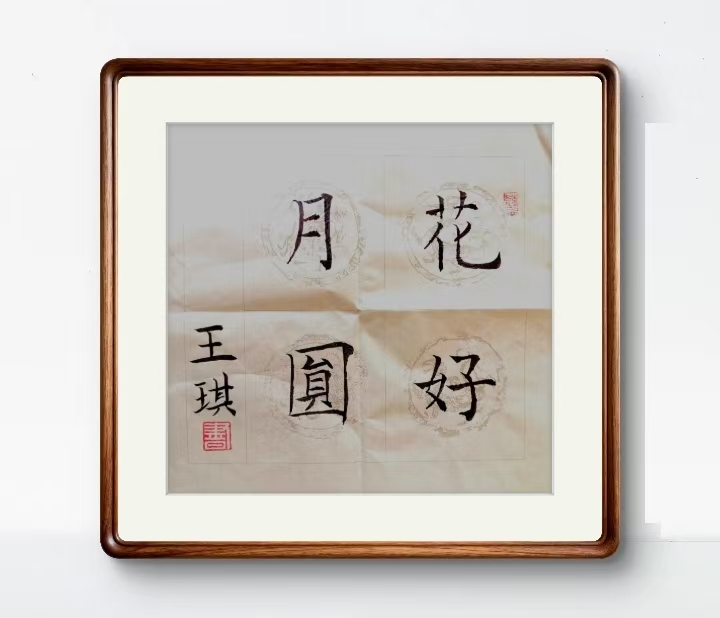 花好
月圓
王琪
書